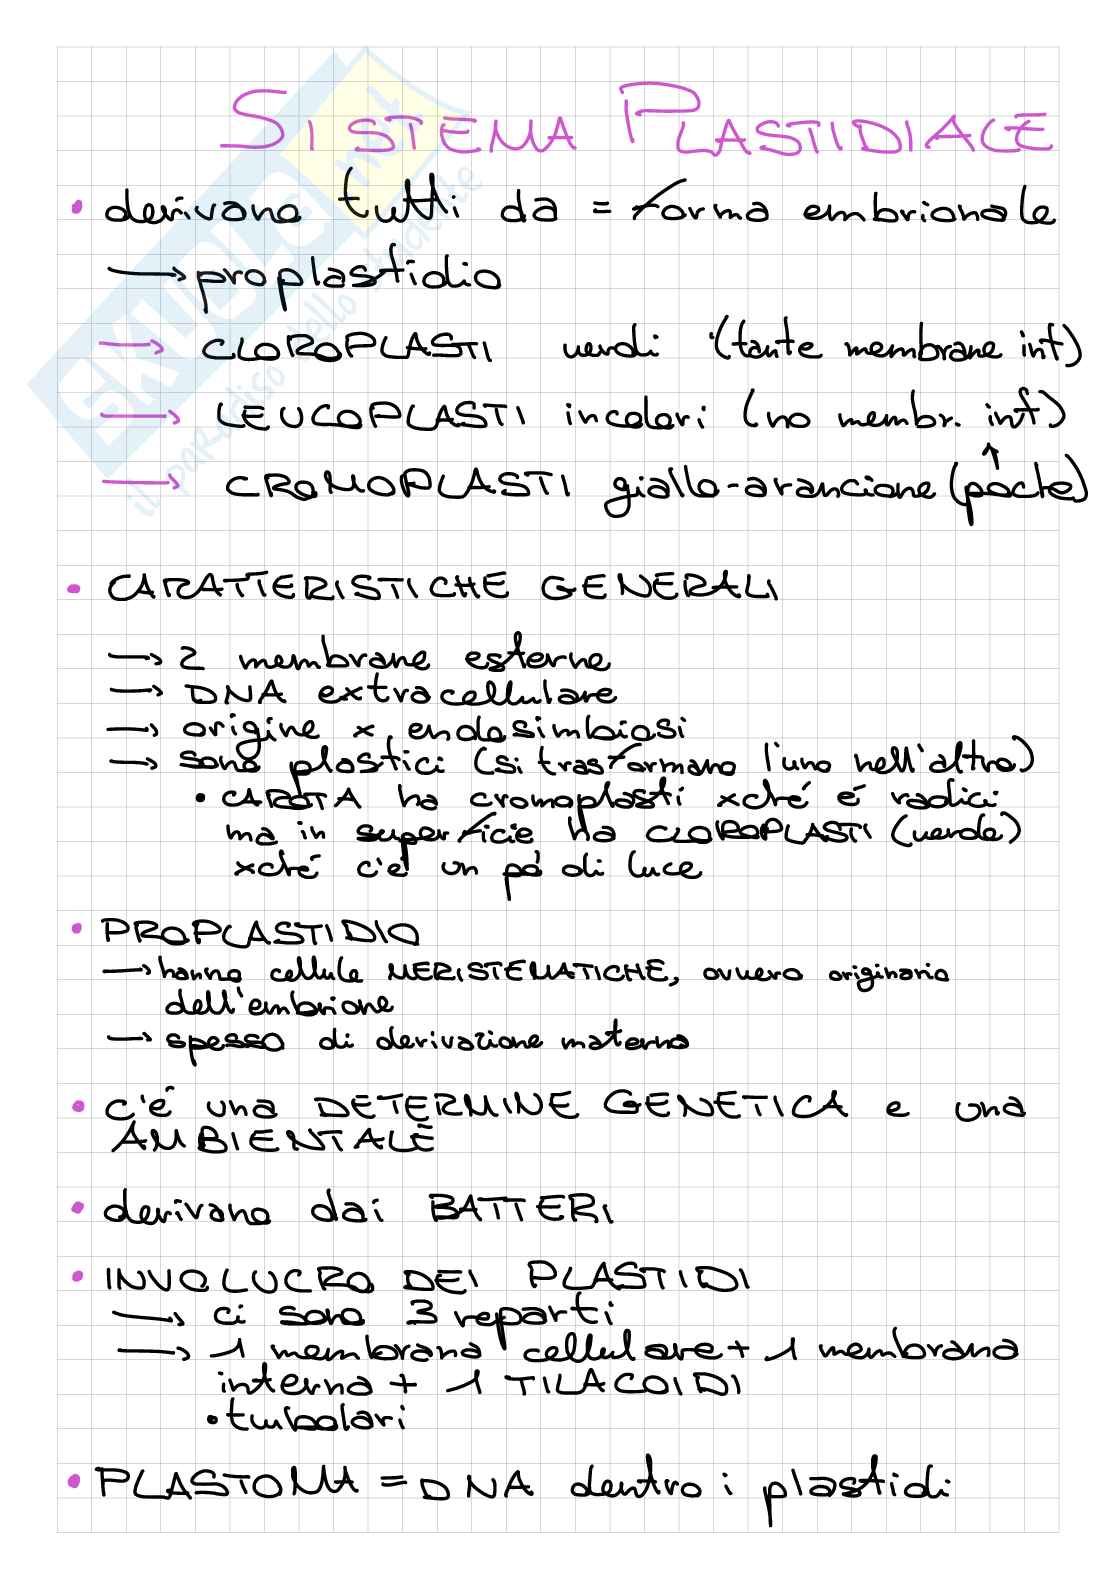 SISTEMA PLASTIDIALE
• derivano tutti da = forma embrionale
→ proplastidio
→ CLOROPLASTI verdi (tante membrane int)
→ LEUCOPLASTI incolori (no membr. int)
→ CROMOPLASTI giallo-arancione (poche)
• CARATTERISTICHE GENERALI
→ 2 membrane esterne
→ DNA extracellulare
→ origine x endosimbiosi
→ sono plastici (si trasformano l'uno nell'altro)
• CAROTA ha cromoplasti xché é radici
ma in superficie ha CLOROPLASTI (verde)
xché c'é un pò di luce
• PROPLASTIDIO
→ hanno cellule MERISTEMATICHE, ovvero originario
dell'embrione
→ spesso di derivazione materna
• c'é una DETERMINE GENETICA e una
AMBIENTALE
• derivano dai BATTERI
• INVOLUCRO DEI PLASTIDI
→ ci sono 3 reparti
→ 1 membrana cellulare + 1 membrana
interna + 1 TILACOIDI
• tubolari
• PLASTOMA = DNA dentro i plastidi
SKUOLA.net
il paradiso dello studente